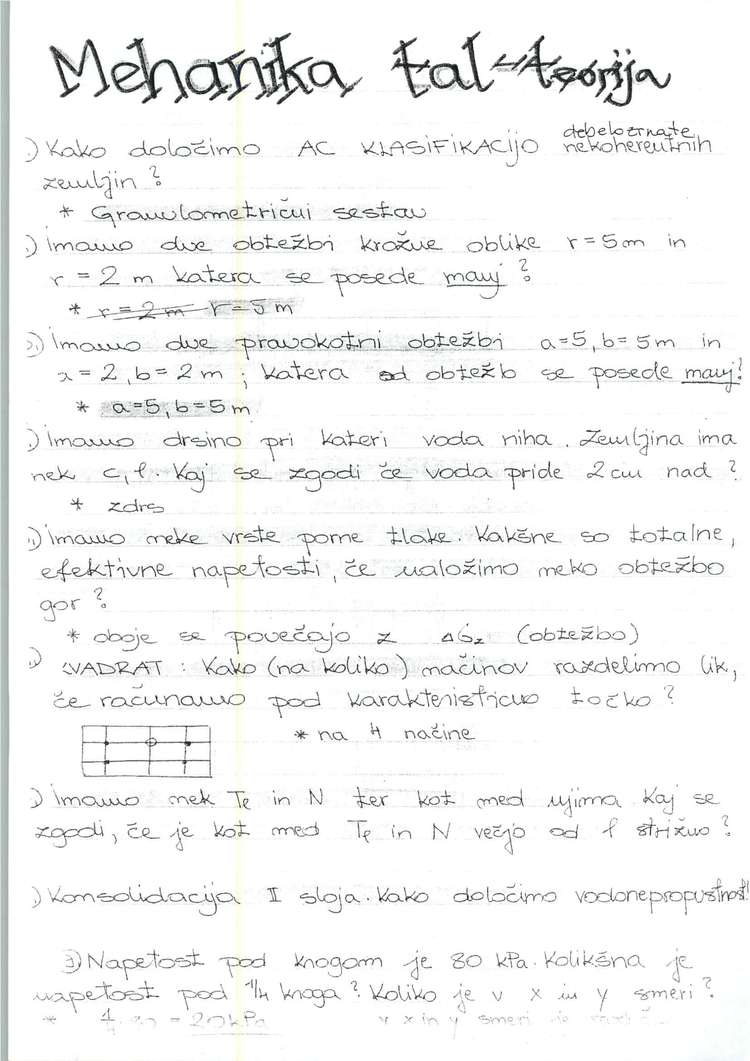 Mehanika tal - teorija
) Kako določimo AC KLASIFIKACIJO debelozrnate, nekoherentnih
zemljin?
* Granulometrični sestav
) Imamo dve obtežbi krožne oblike r = 5m in
r = 2 m katera se posede manj?
* r = 2 m r = 5 m
) Imamo dve pravokotni obtežbi a=5, b= 5m in
a= 2, b= 2 m ; katera od obtežb se posede manj?
* a=5, b=5m
) Imamo drsino pri kateri voda niha. Zemljina ima
nek c, f. Kaj se zgodi če voda pride 2cm nad?
* zdrs
) Imamo neke vrste porne tlake. Kakšne so totalne,
efektivne napetosti, če naložimo neko obtežbo
gor?
* oboje se povečajo z ΔG₂ (obtežbo)
) KVADRAT : Kako (na koliko) načinov razdelimo lik,
če računamo pod karakteristično točko?
* na 4 načine
) Imamo nek Tf in N ter kot med njima. Kaj se
zgodi, če je kot med Tf in N večjo od f strižno?
) Konsolidacija II sloja. Kako določimo vodonepropustnost?
) Napetost pod krogom je 80 kPa. Kolikšna je
napetost pod 1/4 kroga? Koliko je v x in y smeri?
* = 20kPa v x in y smeri